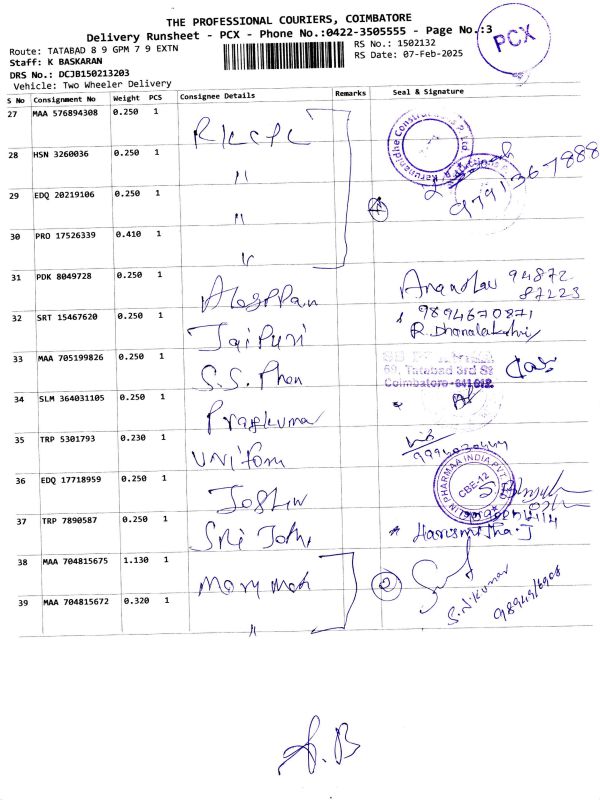 THE PROFESSIONAL COURIERS, COIMBATORE
Delivery Runsheet - PCX - Phone No.:0422-3505555 - Page No.:3
PCX
Route: TATABAD 8 9 GPM 7 9 EXTN
RS No.: 1502132
Staff: K BASKARAN
RS Date: 07-Feb-2025
DRS No.: DCJB150213203
Vehicle: Two Wheeler Delivery
S No Consignment No Weight PCS Consignee Details Remarks Seal & Signature
27 MAA 576894308 0.250 1
28 HSN 3260036 0.250 1 "
9791367888
29 EDQ 20219106 0.250 1 "
4
30 PRO 17526339 0.410 1 "
31 PDK 8049728 0.250 1 Alagppan
94872
87223
32 SRT 15467620 0.250 1 Jaipuri
9894670871
R. Dhanalakshmi
33 MAA 705199826 0.250 1 S.S. Phon
69, Tatabad 3rd St
Coimbatore-641012.
34 SLM 364031105 0.250 1 Pragkumar
35 TRP 5301793 0.230 1 Uniform
36 EDQ 17718959 0.250 1
PHARMAA INDIA PVT
CBE-12
37 TRP 7890587 0.250 1 Sri Jothi
Harismitha.J
38 MAA 704815675 1.130 1
2
S.N.Kumar
39 MAA 704815672 0.320 1 "
A.B